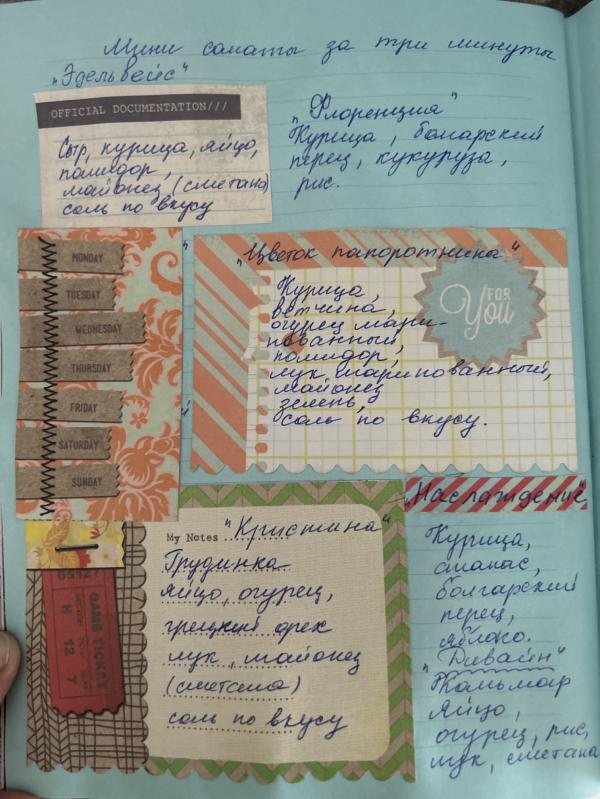 Мини салаты за три минуты
"Эдельвейс"
OFFICIAL DOCUMENTATION///
Сыр, курица, яйцо,
помидор,
майонез (сметана)
соль по вкусу
"Флоренция"
Курица, болгарский
перец, кукуруза,
рис.
MONDAY
TUESDAY
WEDNESDAY
THURSDAY
FRIDAY
SATURDAY
SUNDAY
"Цветок папоротника"
Курица,
ветчина,
огурец мари-
нованный,
помидор,
лук маринованный,
майонез
зелень,
соль по вкусу.
FOR
You
My Notes "Кристина"
Грудинка
яйцо, огурец,
грецкий орех
лук, майонез
(сметана)
соль по вкусу
GAME TICKET
H 12 7
"Наслаждение"
Курица,
ананас,
болгарский
перец,
яблоко.
"Дивайн"
Кальмар
яйцо,
огурец, рис,
лук, сметана